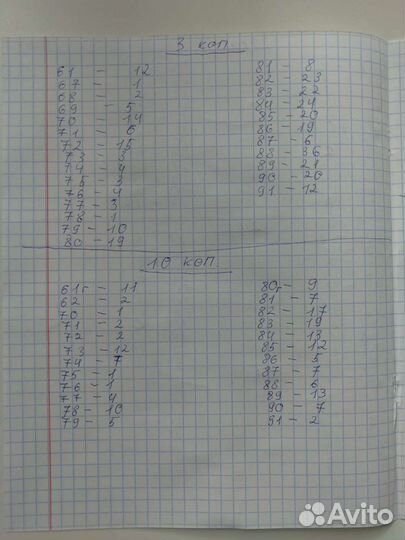 3 коп
61 - 12
67 - 1
68 - 2
69 - 5
70 - 14
71 - 6
72 - 15
73 - 3
74 - 4
75 - 3
76 - 4
77 - 3
78 - 1
79 - 10
80 - 19
81 - 8
82 - 23
83 - 22
84 - 24
85 - 20
86 - 19
87 - 6
88 - 36
89 - 21
90 - 20
91 - 12
10 коп
61г - 11
62 - 2
70 - 1
71 - 2
72 - 2
73 - 12
74 - 7
75 - 1
76 - 1
77 - 4
78 - 10
79 - 5
80г - 9
81 - 7
82 - 17
83 - 19
84 - 13
85 - 12
86 - 5
87 - 7
88 - 6
89 - 13
90 - 7
91 - 2
Avito